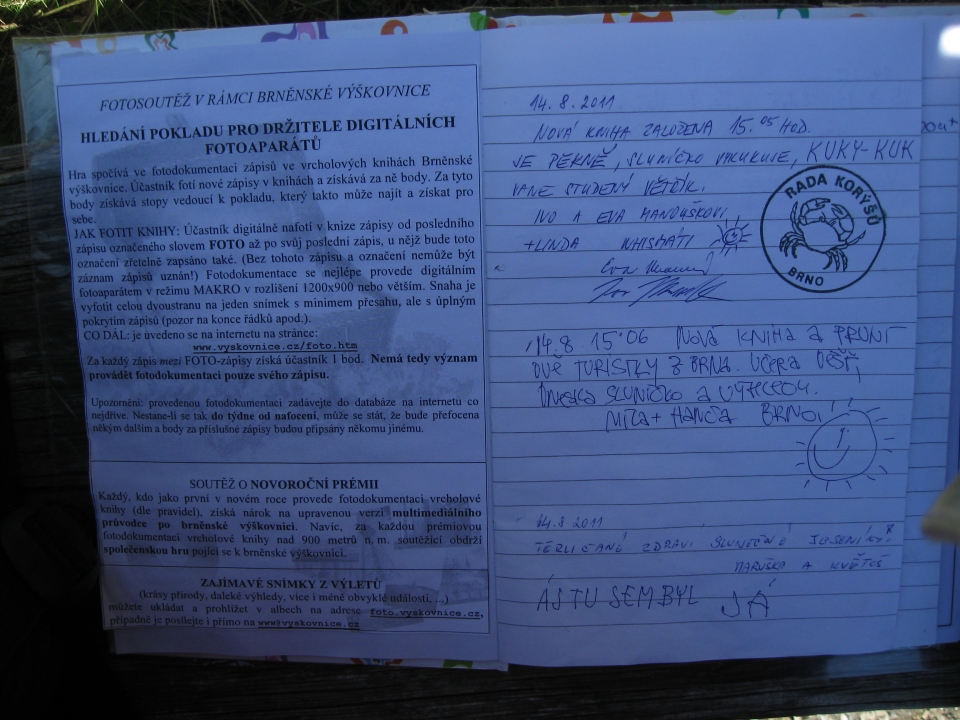 FOTOSOUTĚŽ V RÁMCI BRNĚNSKÉ VÝŠKOVNICE
HLEDÁNÍ POKLADU PRO DRŽITELE DIGITÁLNÍCH
FOTOAPARÁTŮ
Hra spočívá ve fotodokumentaci zápisů ve vrcholových knihách Brněnské
výškovnice. Účastník fotí nové zápisy v knihách a získává za ně body. Za tyto
body získává stopy vedoucí k pokladu, který takto může najít a získat pro
sebe.
JAK FOTIT KNIHY: Účastník digitálně nafotí v knize zápisy od posledního
zápisu označeného slovem FOTO až po svůj poslední zápis, u nějž bude toto
označení zřetelně zapsáno také. (Bez tohoto zápisu a označení nemůže být
záznam zápisů uznán!) Fotodokumentace se nejlépe provede digitálním
fotoaparátem v režimu MAKRO v rozlišení 1200x900 nebo větším. Snaha je
vyfotit celou dvoustranu na jeden snímek s minimem přesahu, ale s úplným
pokrytím zápisů (pozor na konce řádků apod.).
CO DÁL: je uvedeno se na internetu na stránce:
www.vyskovnice.cz/foto.htm
Za každý zápis mezi FOTO-zápisy získá účastník 1 bod. Nemá tedy význam
provádět fotodokumentaci pouze svého zápisu.
Upozornění: provedenou fotodokumentaci zadávejte do databáze na internetu co
nejdříve. Nestane-li se tak do týdne od nafocení, může se stát, že bude přefocena
někým dalším a body za příslušné zápisy budou připsány někomu jinému.
SOUTĚŽ O NOVOROČNÍ PRÉMII
Každý, kdo jako první v novém roce provede fotodokumentaci vrcholové
knihy (dle pravidel), získá nárok na upravenou verzi multimediálního
průvodce po brněnské výškovnici. Navíc, za každou prémiovou
fotodokumentaci vrcholové knihy nad 900 metrů n. m. soutěžící obdrží
společenskou hru pojící se k brněnské výškovnici.
ZAJÍMAVÉ SNÍMKY Z VÝLETŮ
(krásy přírody, daleké výhledy, více i méně obvyklé události, ...)
můžete ukládat a prohlížet v albech na adrese foto.vyskovnice.cz,
případně je posílejte i přímo na www@vyskovnice.cz
14.8.2011
NOVÁ KNIHA ZALOŽENA 15.05 HOD.
JE PĚKNĚ, SLUNÍČKO VYKUKUJE, KUKY-KUK
VANE STUDENÝ VĚTŘÍK.
IVO A EVA
+LINDA
RADA KORÝŠŮ
BRNO
14.8 15:06 NOVÁ KNIHA A PRVNÍ
DVĚ TURISTKY Z BRNA. VČERA DÉŠŤ,
DNESKA SLUNÍČKO A VÝHLEDY.
MÍLA + HANČA BRNO
14.8 2011
ZDRAVÍ SLUNEČNÉ JESENÍKY
MARUŠKA A KVĚTOŠ
ÁŠ TU SEM BYL JÁ